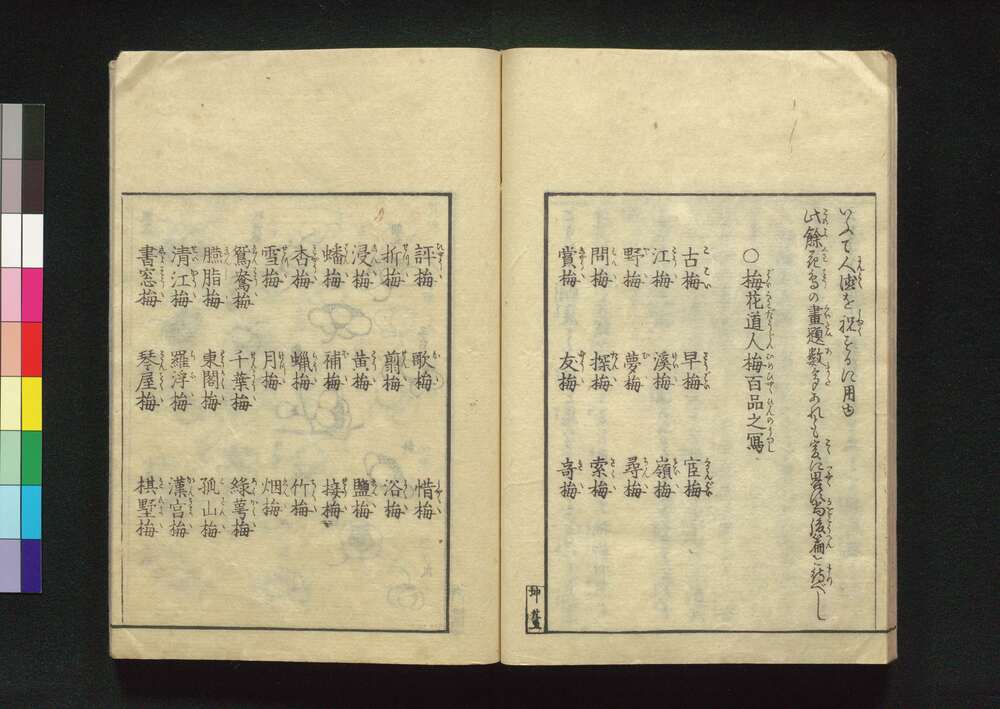 を祝するに用ゆ
此餘花鳥の畫題数多あれども爰に畧す尚後篇に誌べし
〇梅花道人梅百品之冩
古梅 早梅 官梅
江梅 溪梅 嶺梅
野梅 夢梅 尋梅
問梅 探梅 索梅
賞梅 友梅 竒梅
坤
評梅 歌梅 惜梅
折梅 剪梅 浴梅
浸梅 黄梅 鹽梅
蟠梅 補梅 接梅
杏梅 蝋梅 竹梅
雪梅 月梅 烟梅
鴛鴦梅 千葉梅 緑萼梅
臙脂梅 東閣梅 孤山梅
清江梅 羅浮梅 漢宮梅
書窓梅 琴屋梅 棋墅梅